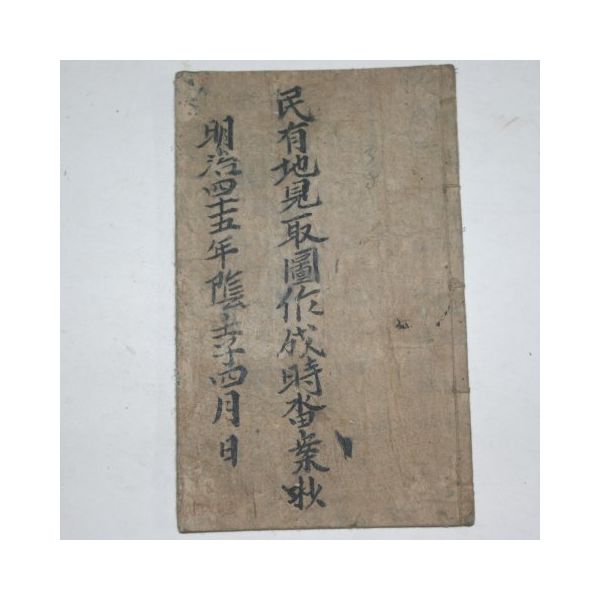 民有地見取圖作成時畓案
明治四十五年陰壬子四月日